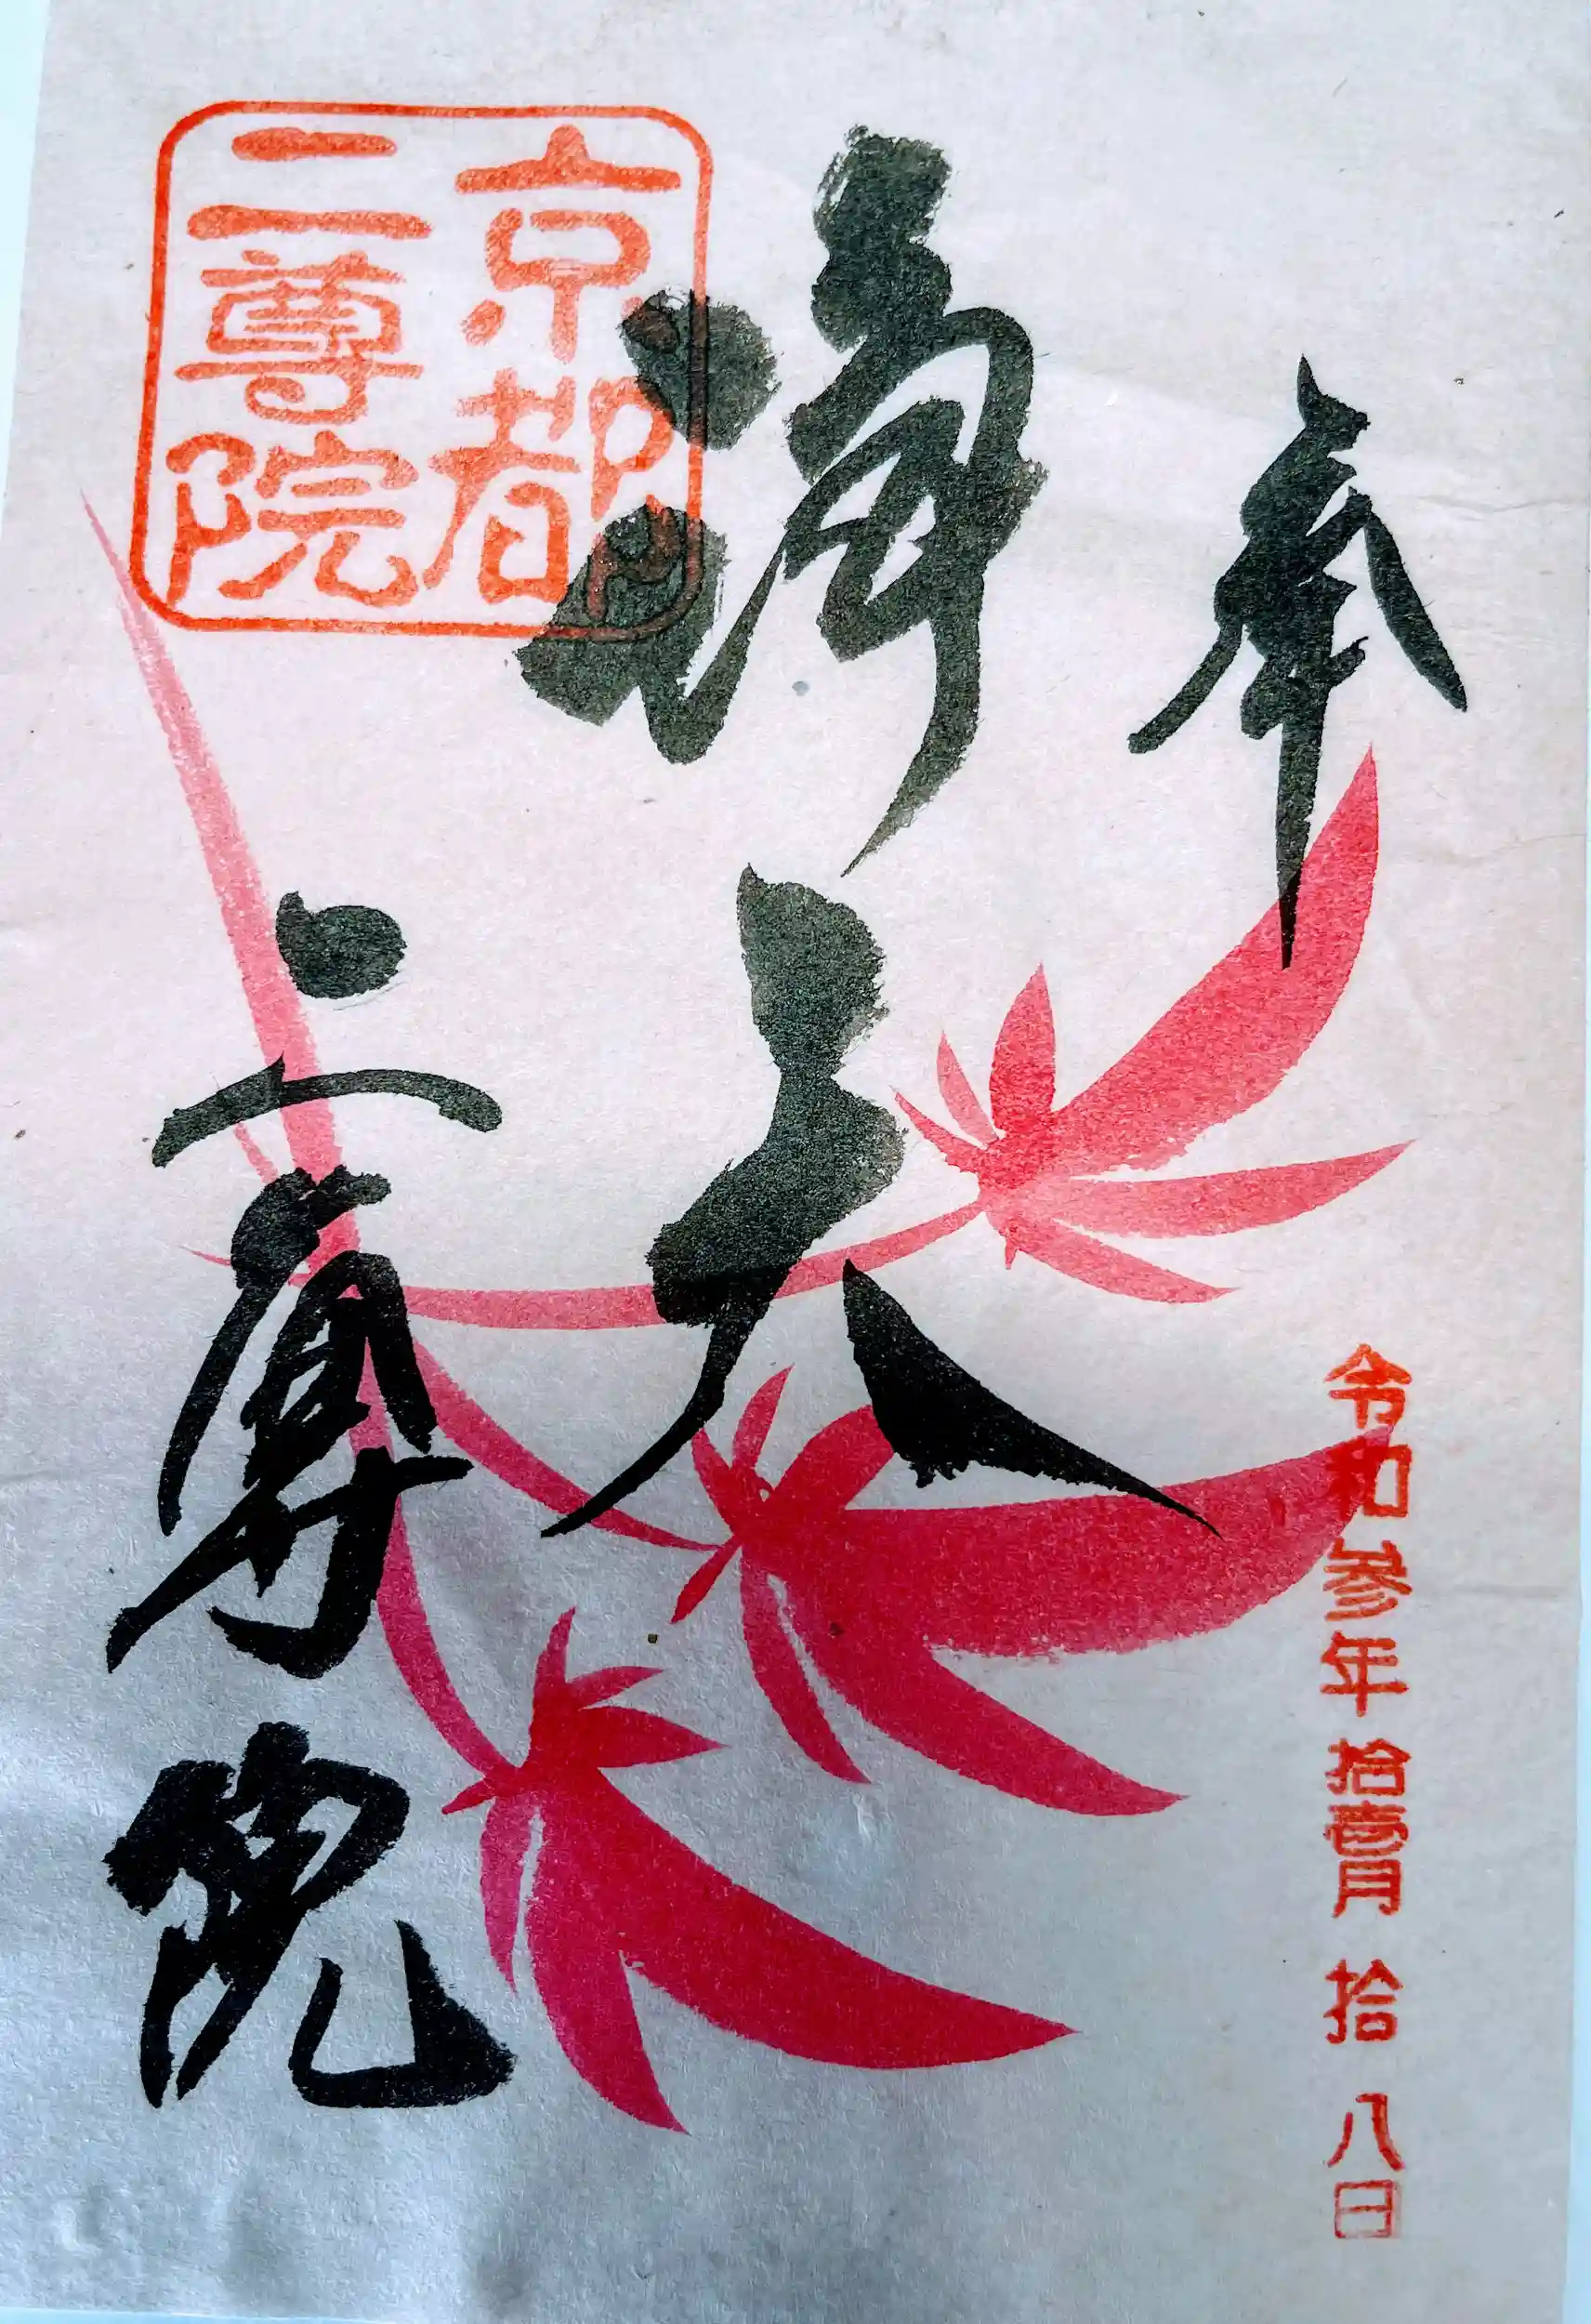 奉
令和参年拾壹月拾八日
京都
二尊院
二尊院